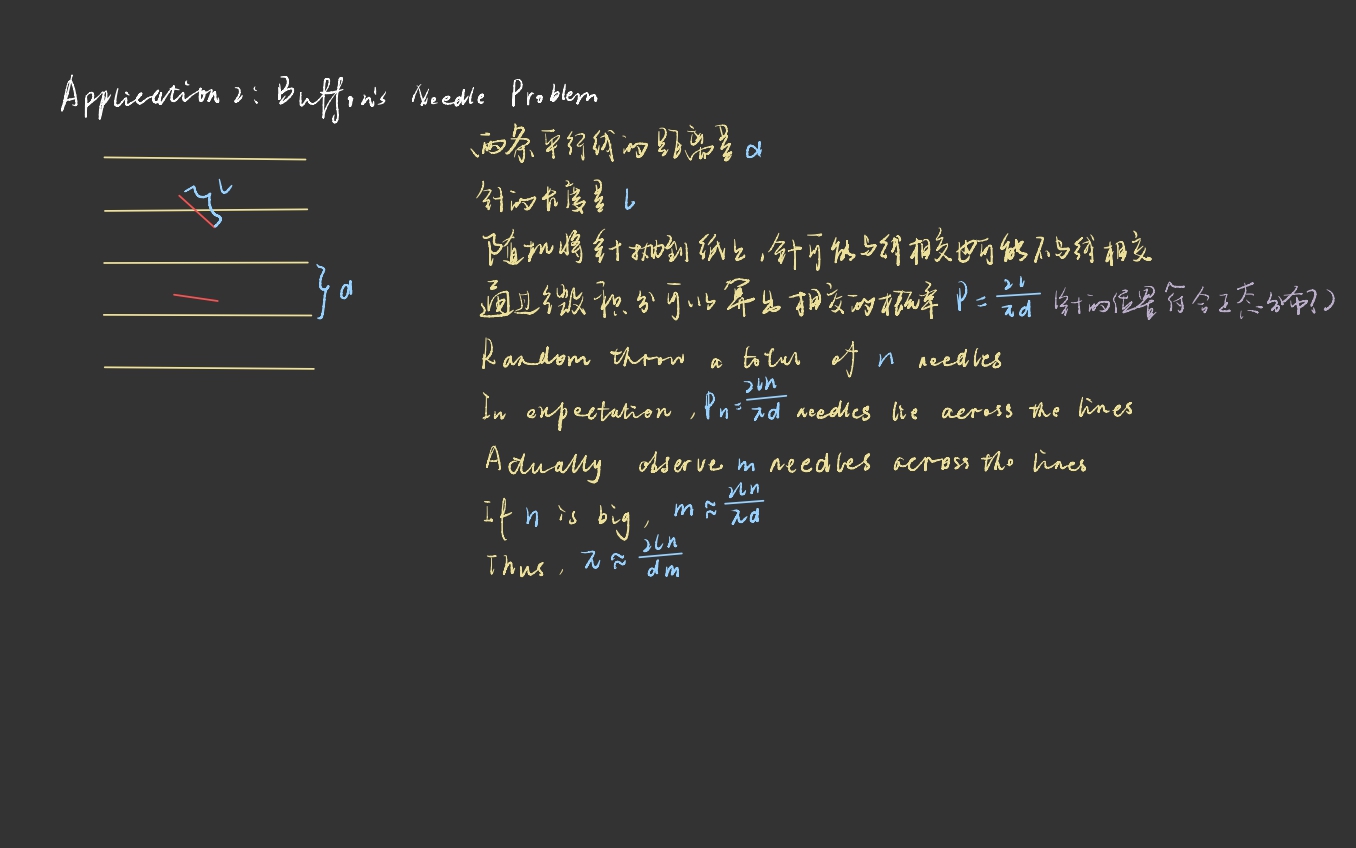 Application 2: Buffon's Needle Problem
两条平行线的距离是 d
l
针的长度是 l
随机将针抛到纸上,针可能与线相交也可能不与线相交
d
通过微积分可以算出相交的概率 P = \frac{2l}{πd} (针的位置符合正态分布?)
Random throw a total of n needles
In expectation, Pn = \frac{2ln}{πd} needles lie across the lines
Actually observe m needles across the lines
If n is big, m ≈ \frac{2ln}{πd}
Thus, π ≈ \frac{2ln}{dm}